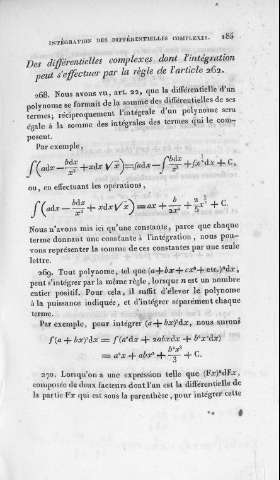 INTÉGRATION DES DIFFÉRENTIELLES COMPLEXES. 185
Des différentielles complexes dont l'intégration
peut s'effectuer par la règle de l'article 262.
268. Nous avons vu, art. 22, que la différentielle d'un
polynome se formait de la somme des différentielles de ses
termes; réciproquement l'intégrale d'un polynome sera
égale à la somme des intégrales des termes qui le com-
posent.
Par exemple,
∫(adx − bdx/x³ + xdx√x) = ∫adx − ∫bdx/x³ + ∫x^{3/2}dx + C,
ou, en effectuant les opérations,
∫(adx − bdx/x³ + xdx√x) = ax + b/2x² + 2/5 x^{5/2} + C.
Nous n'avons mis ici qu'une constante, parce que chaque
terme donnant une constante à l'intégration, nous pou-
vons représenter la somme de ces constantes par une seule
lettre.
269. Tout polynome, tel que (a+bx+cx²+etc.)ⁿdx,
peut s'intégrer par la même règle, lorsque n est un nombre
entier positif. Pour cela, il suffit d'élever le polynome
à la puissance indiquée, et d'intégrer séparément chaque
terme.
Par exemple, pour intégrer (a+bx)²dx, nous aurons
∫(a+bx)²dx = ∫(a²dx + 2abxdx + b²x²dx)
= a²x + abx² + b²x³/3 + C.
270. Lorsqu'on a une expression telle que (Fx)ⁿdFx,
composée de deux facteurs dont l'un est la différentielle de
la partie Fx qui est sous la parenthèse, pour intégrer cette